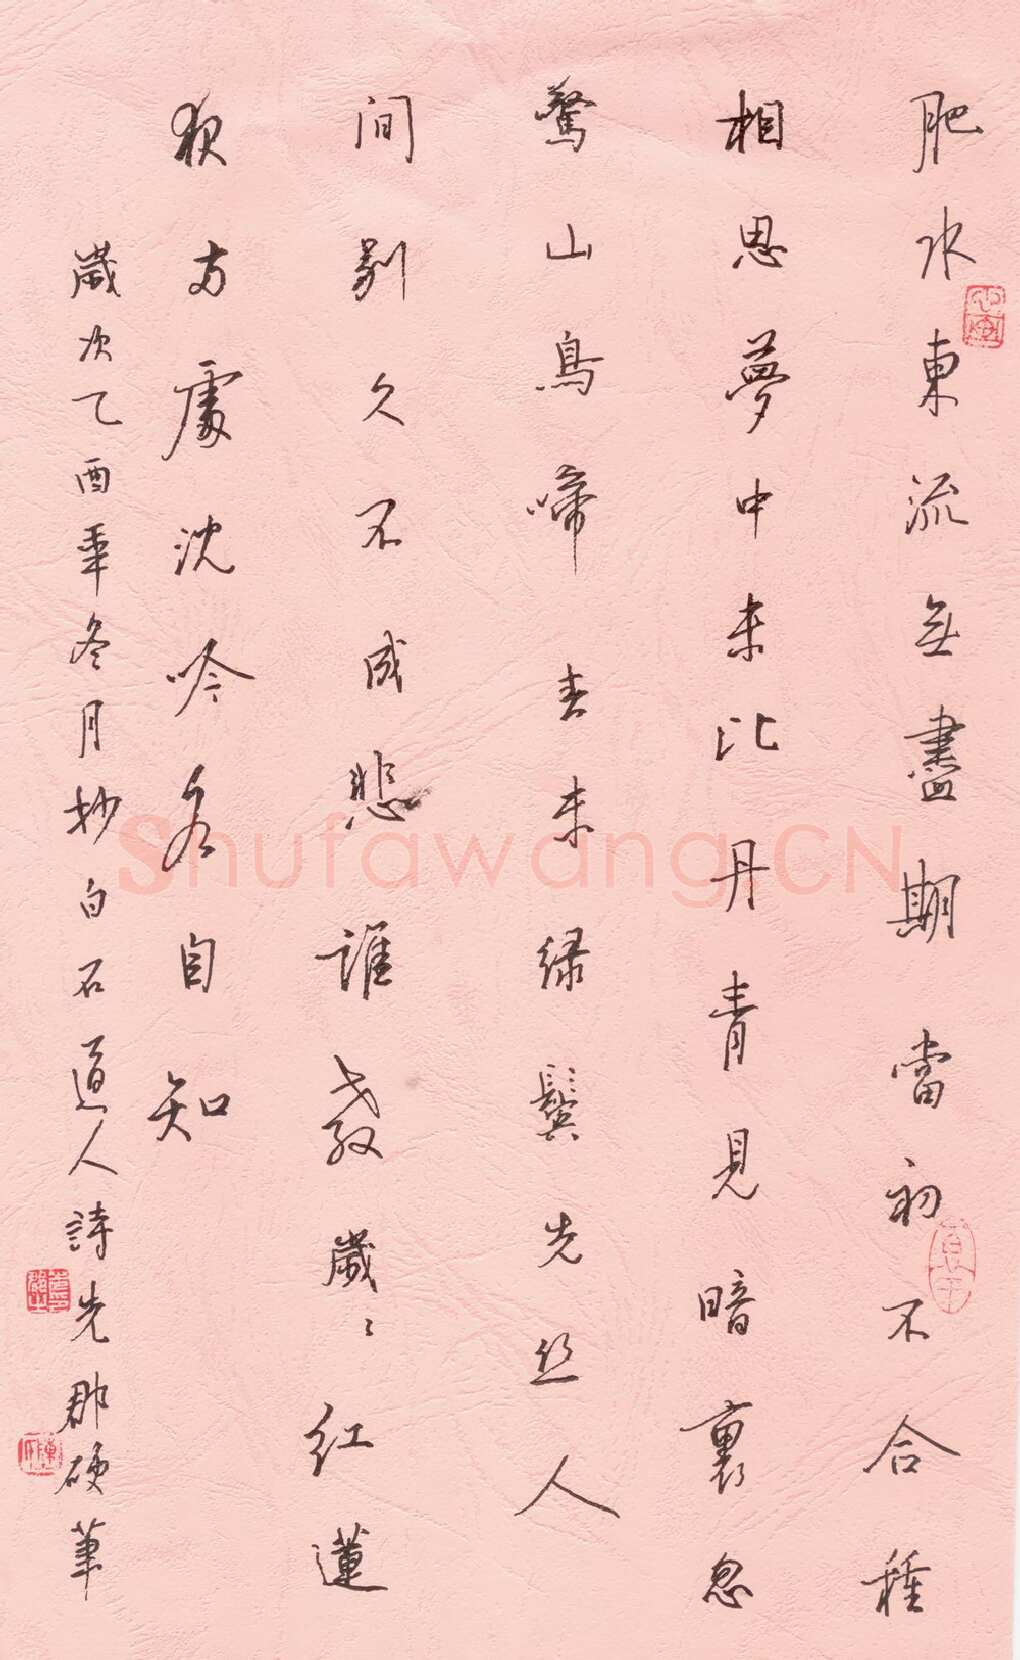 肥水東流無盡期當初不合種
相思夢中未比丹青見暗裏忽
驚山鳥啼春未綠鬓先丝人
间别久不成悲誰教歲〻红蓮
夜两處沈吟各自知
歲次乙酉年冬月抄白石道人詩先郡硬筆
Shufawang.CN